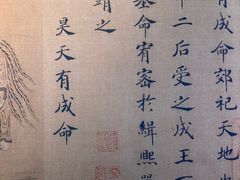 有成命郊祀天地也
二后受之成王
基命宥密於緝熙
靖之
昊天有成命